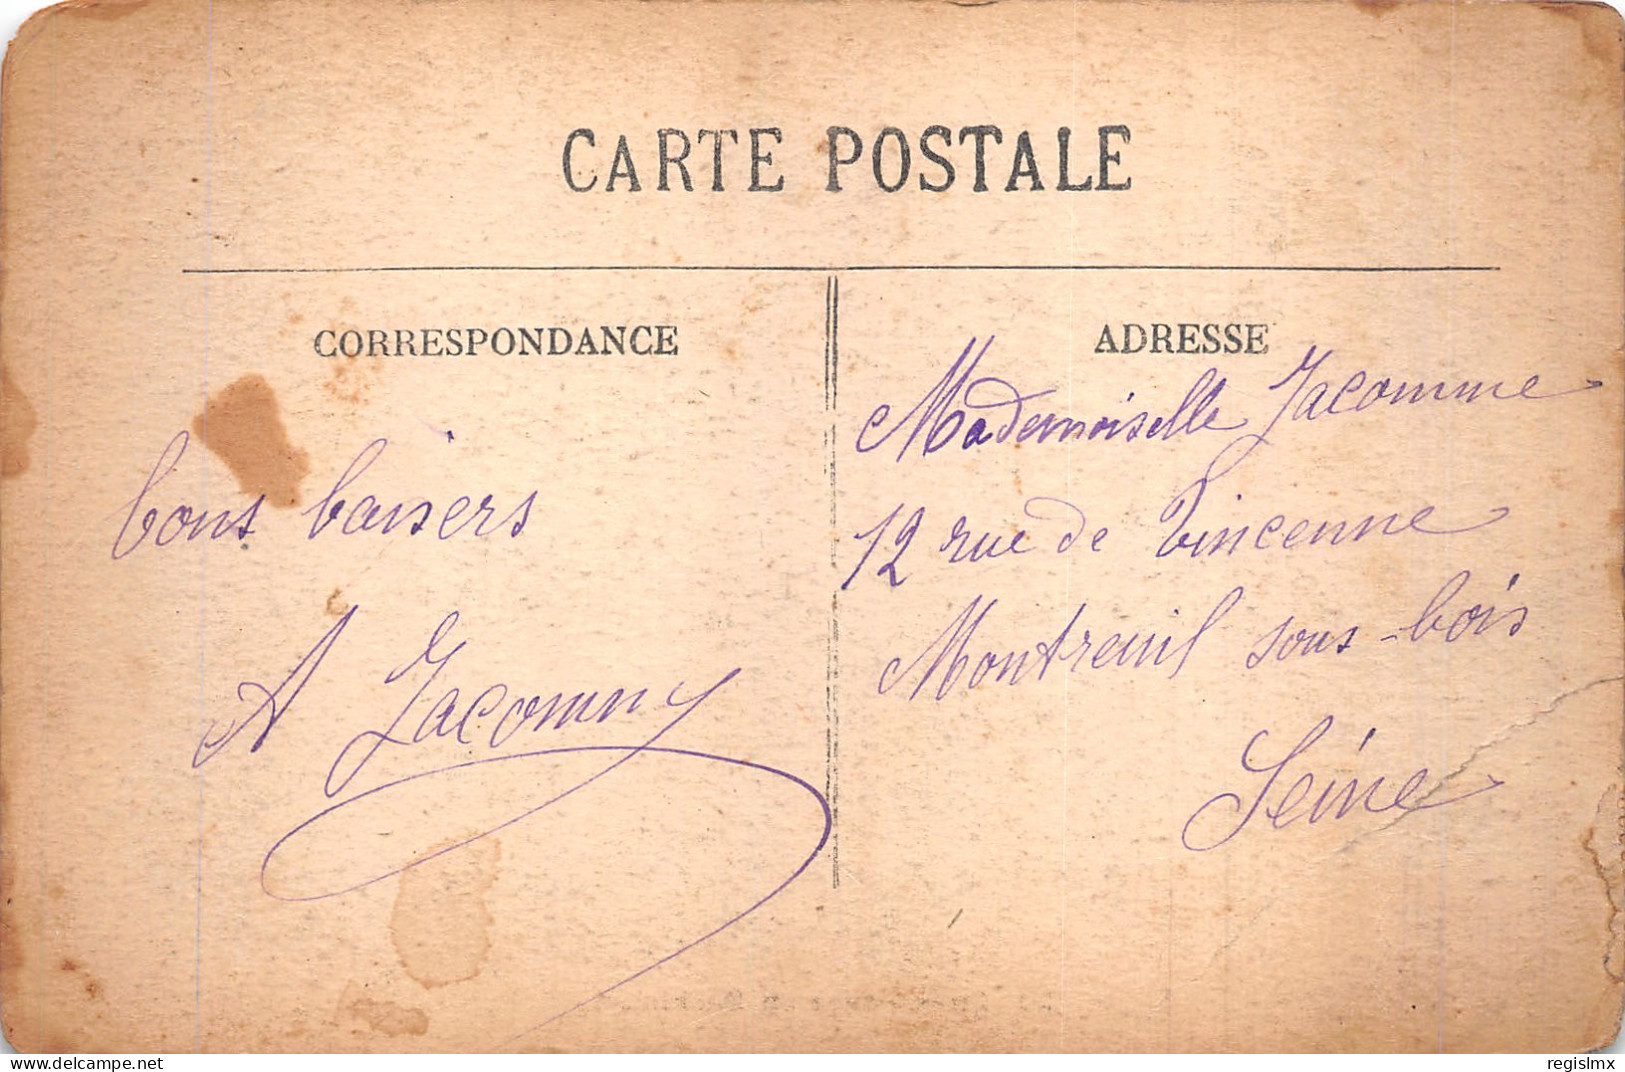 CARTE POSTALE
CORRESPONDANCE
bons baisers
A Jacommy
ADRESSE
Mademoiselle Jacomme
12 rue de Vincenne
Montreuil sous-bois
Seine
delcampe.net
regislmx